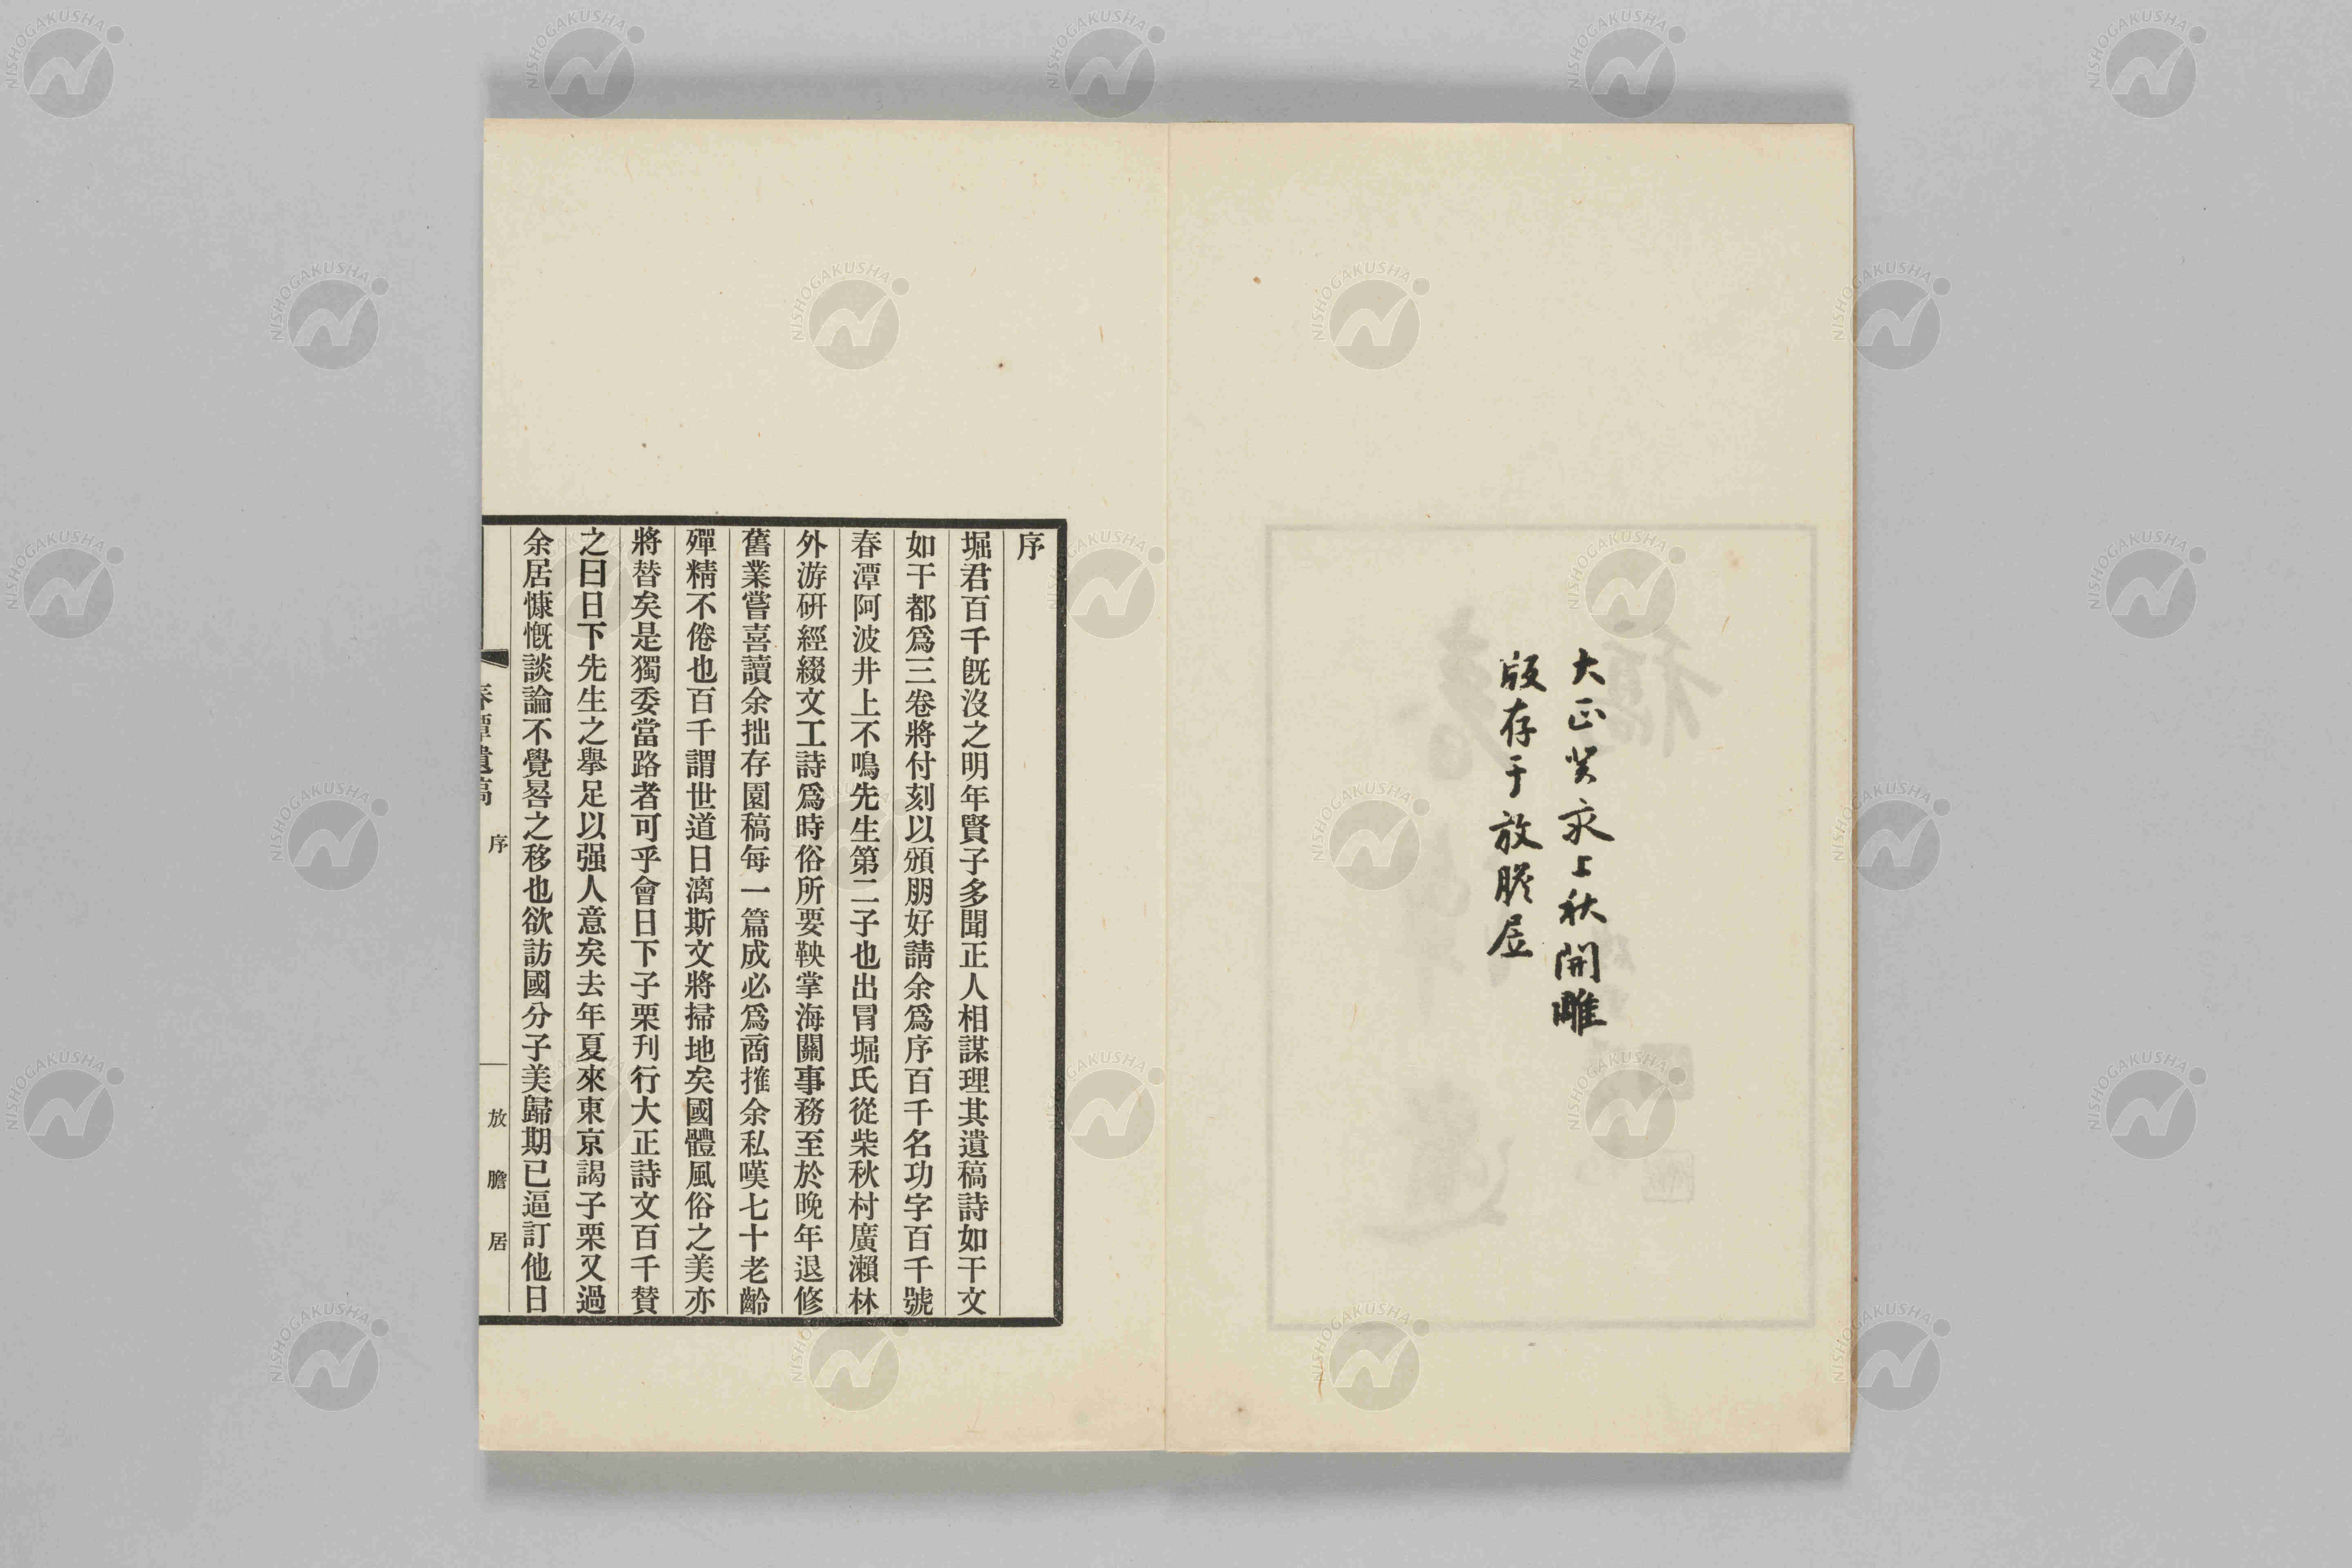 大正癸亥上秋開雕
版存于放膽居
序
堀君百千旣沒之明年賢子多聞正人相謀理其遺稿詩如干文
如干都爲三卷將付刻以頒朋好請余爲序百千名功字百千號
春潭阿波井上不鳴先生第二子也出冒堀氏從柴秋村廣瀨林
外游硏經綴文工詩爲時俗所要鞅掌海關事務至於晚年退修
舊業嘗喜讀余拙存園稿每一篇成必爲商搉余私嘆七十老齡
殫精不倦也百千謂世道日漓斯文將掃地矣國體風俗之美亦
將替矣是獨委當路者可乎會日下子栗刊行大正詩文百千贊
之曰日下先生之擧足以强人意矣去年夏來東京謁子栗又過
余居慷慨談論不覺晷之移也欲訪國分子美歸期已逼訂他日
春潭遺稿 序 一 放膽居
NISHOGAKUSHA